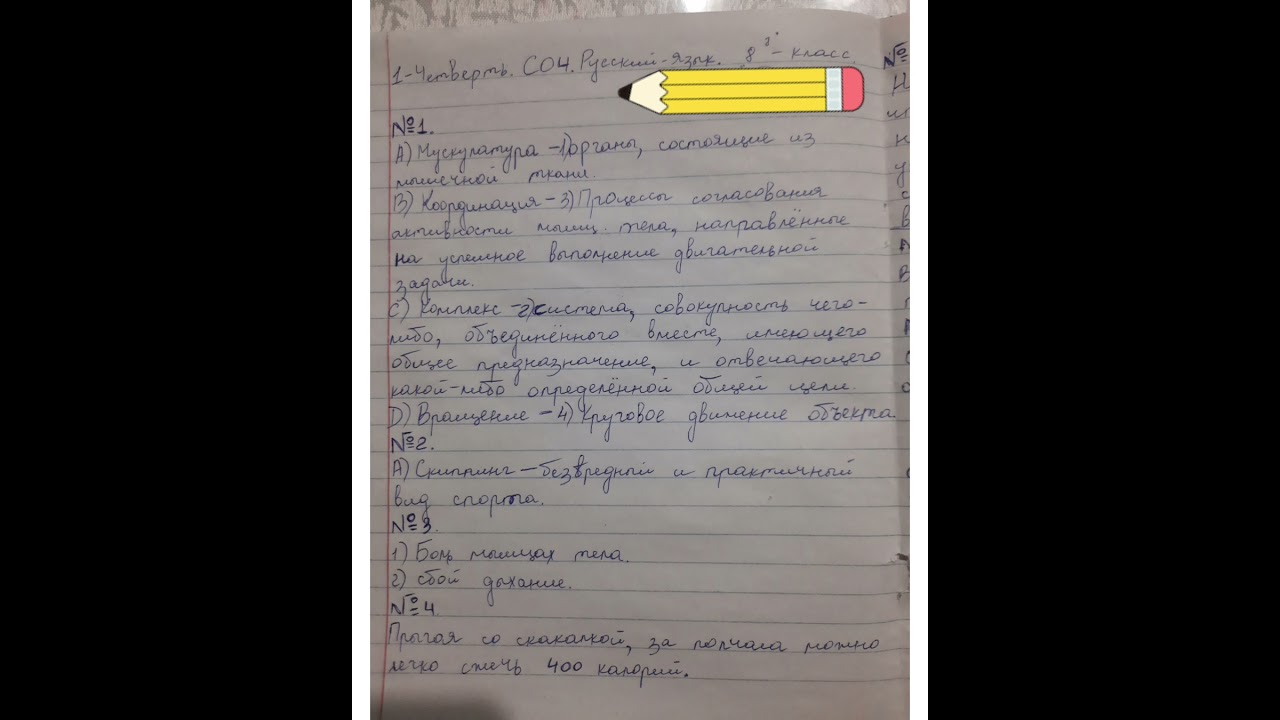 1-Четверть. СОЧ. Русский-язык. 8 "г" - класс.
№1.
А) Мускулатура – 1) органы, состоящие из
мышечной ткани.
В) Координация – 3) Процессы согласования
активности мышц тела, направлённые
на успешное выполнение двигательной
задачи.
С) Комплекс – 2) система, совокупность чего-
либо, объединённого вместе, имеющего
общее предназначение, и отвечающего
какой-либо определённой общей цели.
D) Вращение – 4) Круговое движение объекта
№2.
А) Скиппинг – безвредный и практичный
вид спорта.
№3.
1) Боль мышцах тела.
2) сбой дыхание.
№4
Прыгая со скакалкой, за полчаса можно
легко сжечь 400 калорий.
№